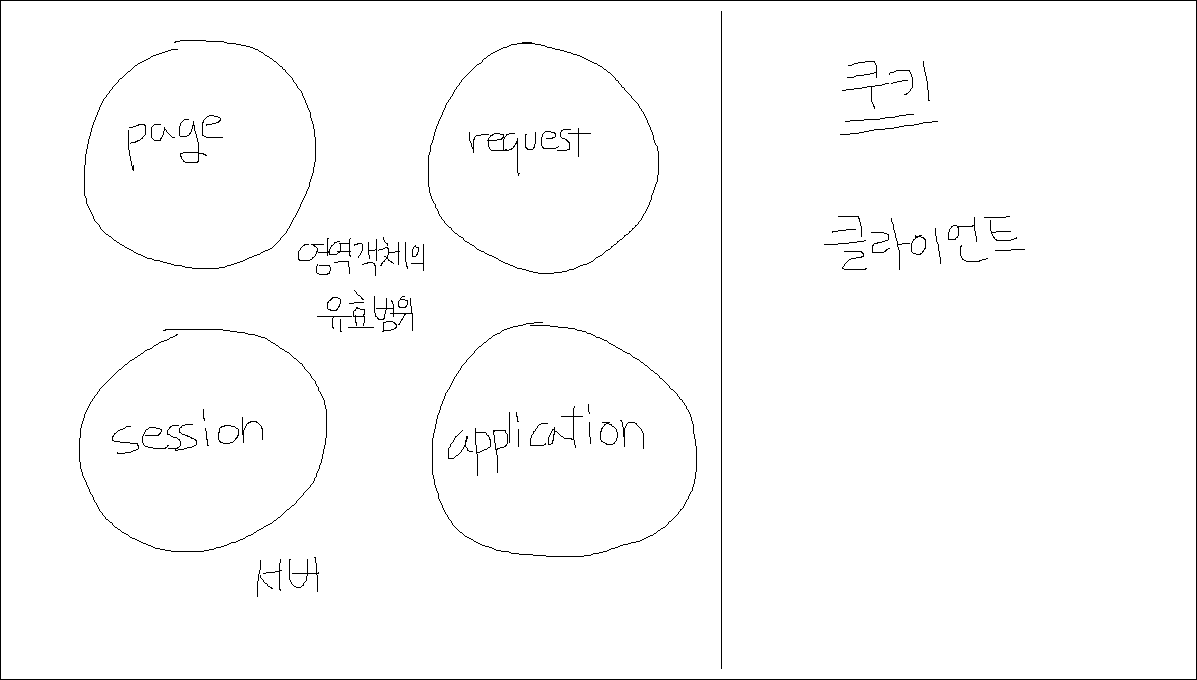 page
request
영역객체의
유효범위
session
application
서버
쿠키
클라이언트